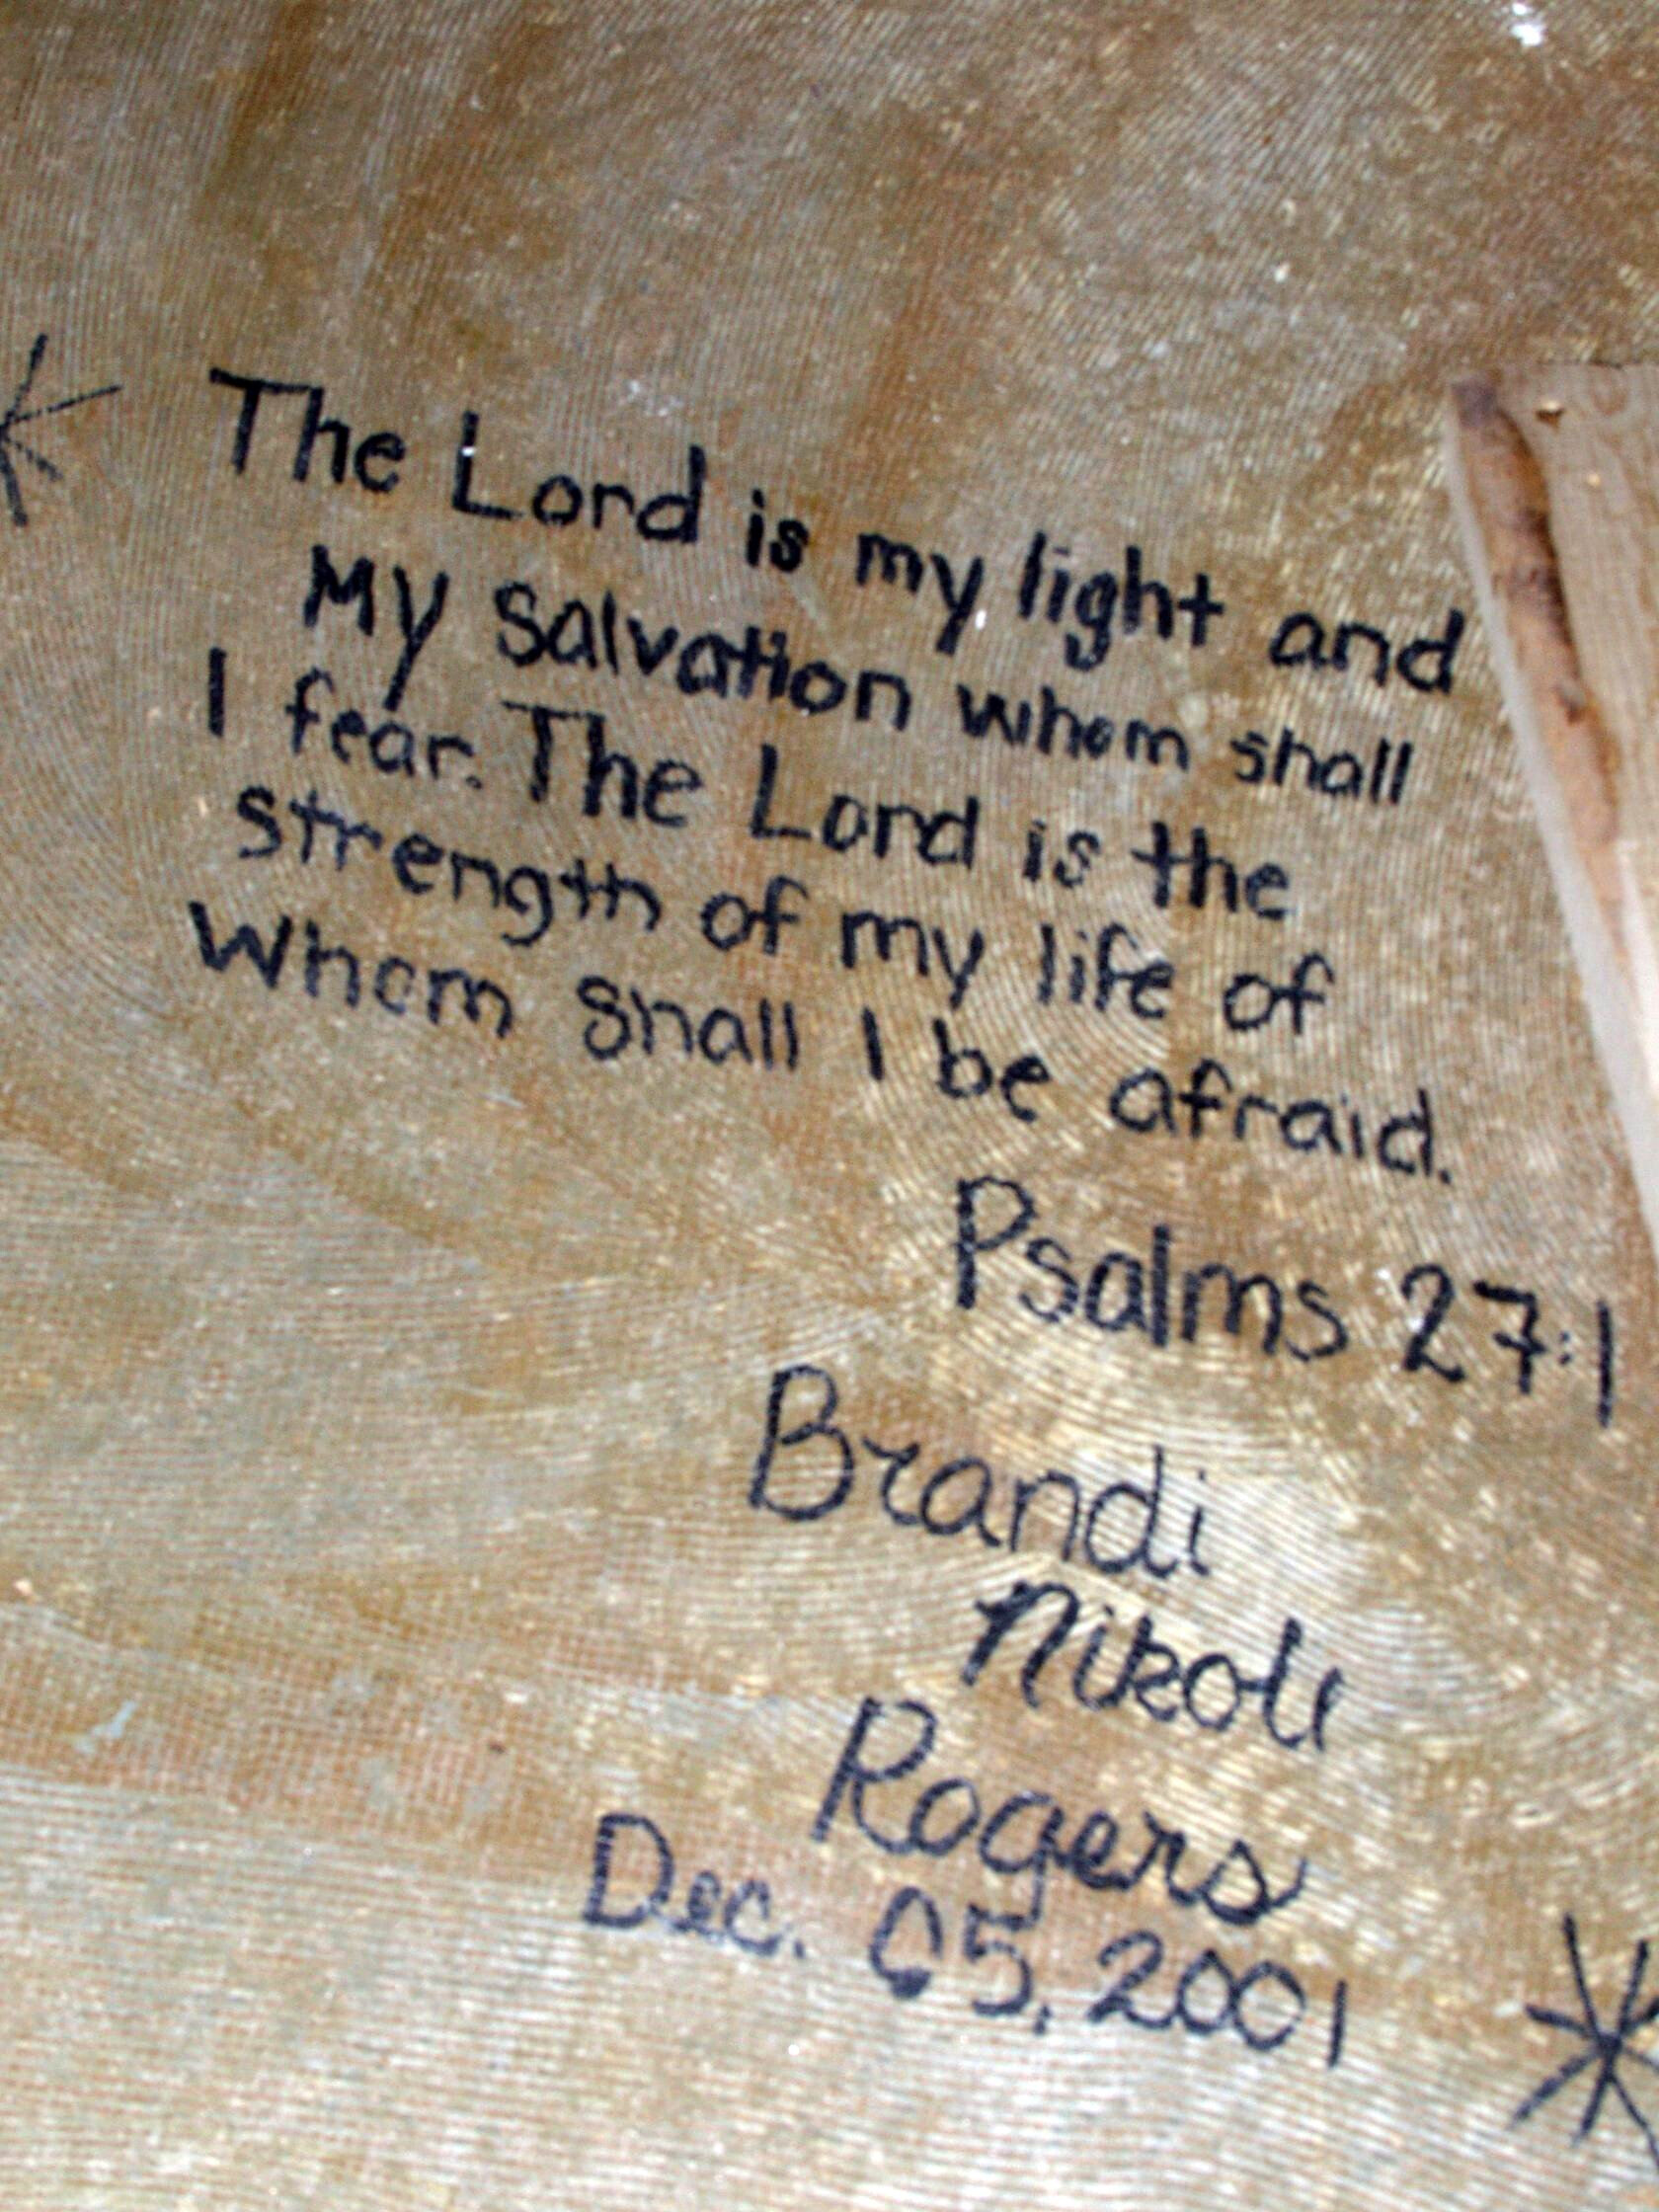 The Lord is my light and
My Salvation whom shall
I fear. The Lord is the
strength of my life of
Whom shall I be afraid.
Psalms 27:1
Brandi
Nikole
Rogers
Dec. 05, 2001